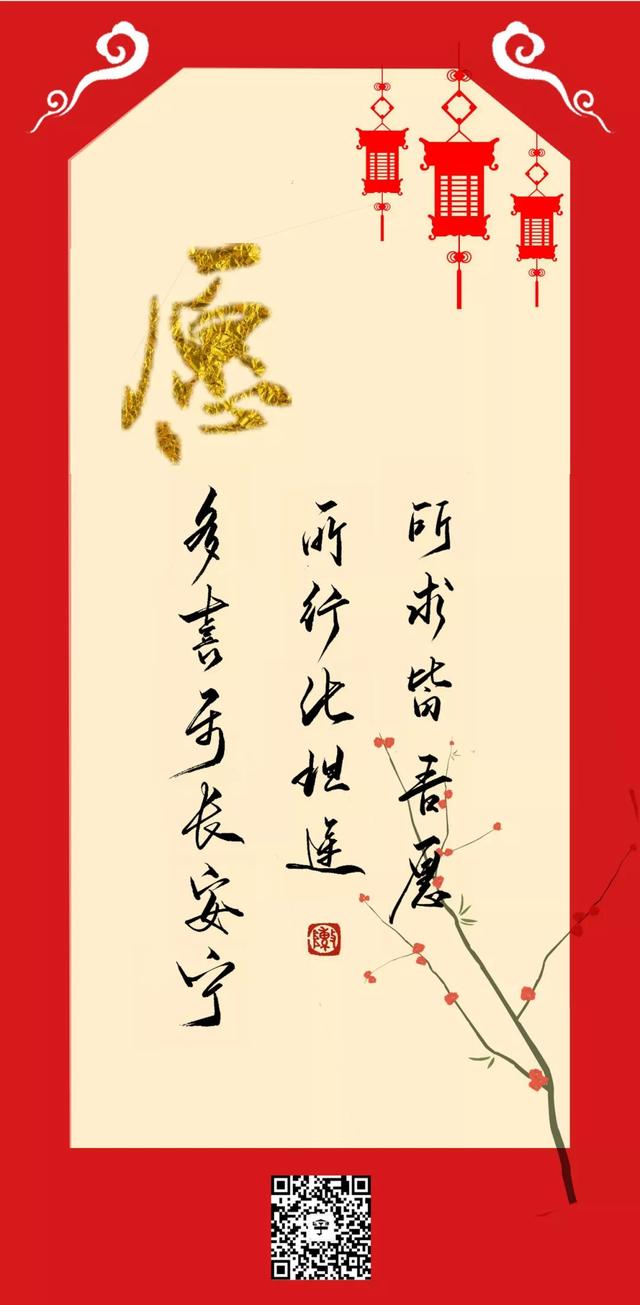 愿
所求皆吾愿
所行化坦途
多喜乐长安宁